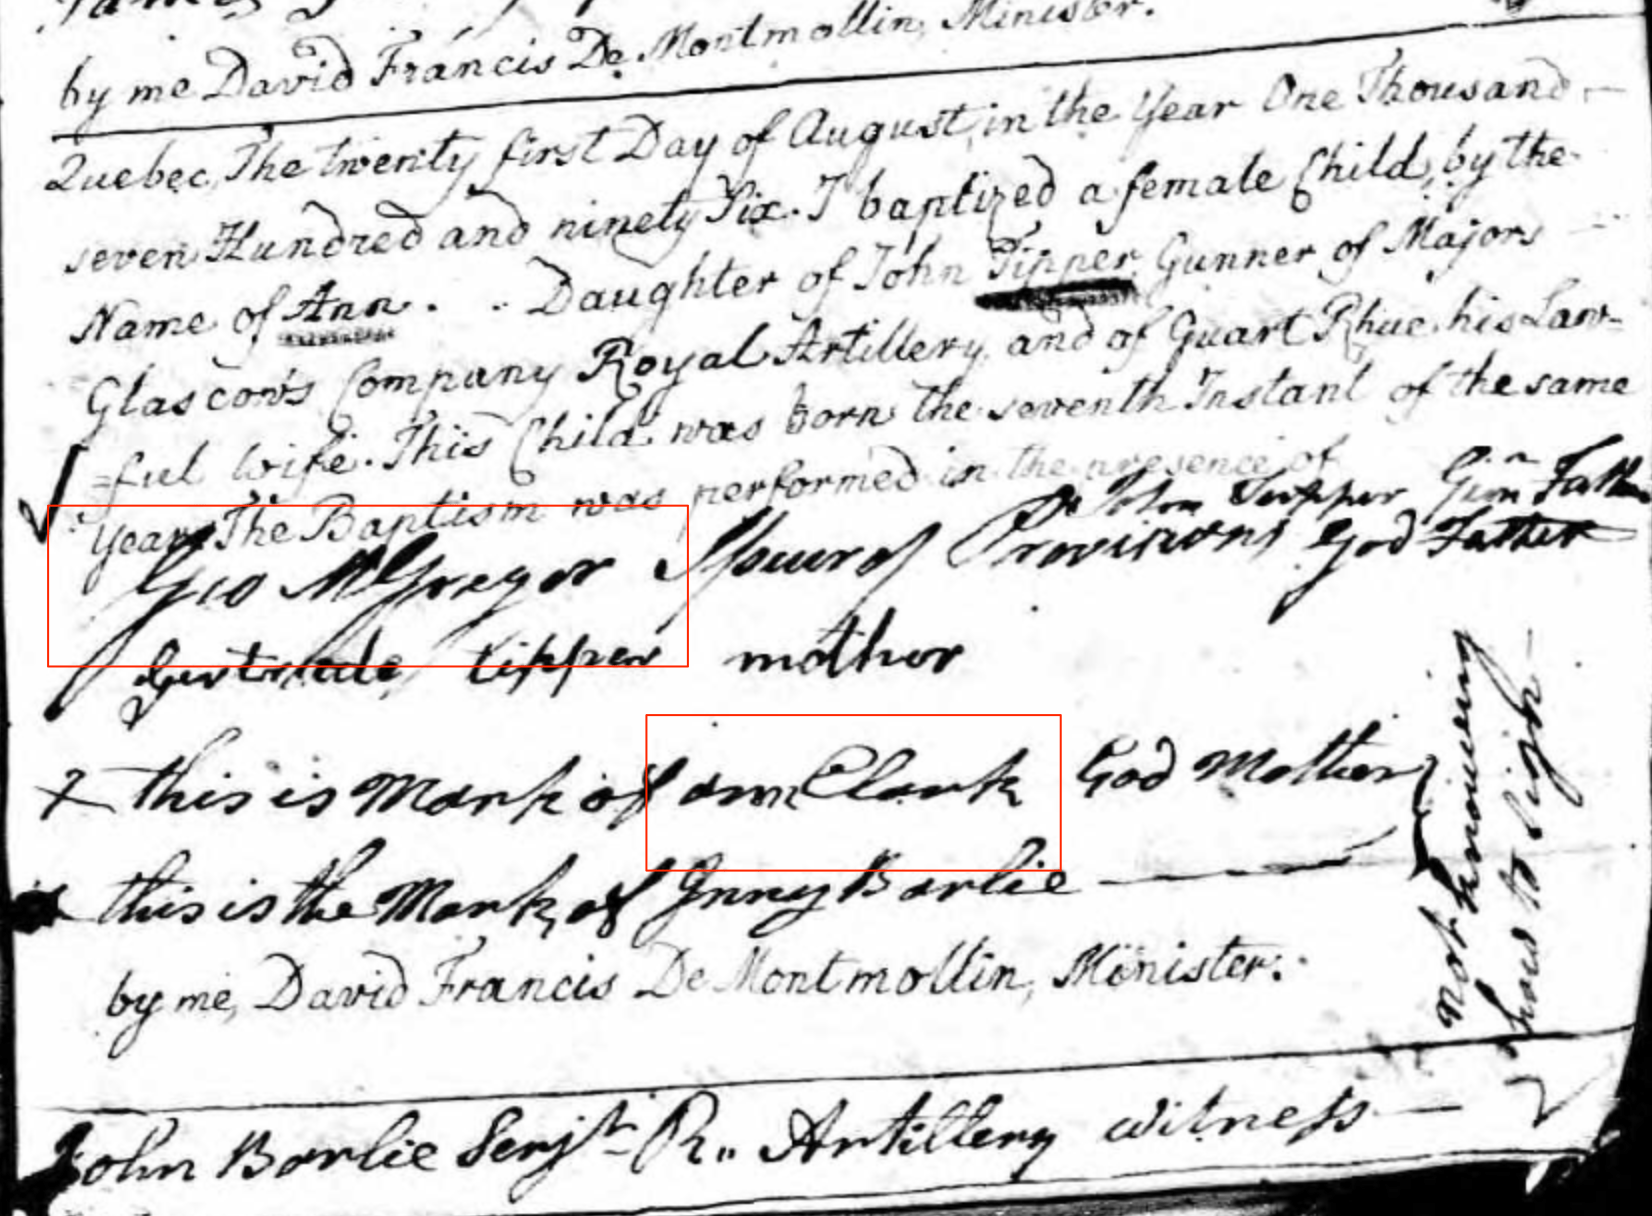 by me David Francis De Montmollin, Minister.
Quebec, The twenty first Day of August, in the Year One Thousand
seven Hundred and ninety Six. I baptized a female Child, by the
Name of Ann. Daughter of John Tipper Gunner of Majors
Glascow's Company Royal Artillery, and of Guart Rhue his Law=
=ful wife. This Child was born the seventh Instant of the same
year. The Baptism was performed in the presence of
John Tipper Father
Geo McGregor Issuer of Provisions God Father
Gertrude tipper mother
X this is Mark of ann Clark God Mother
this is the Mark of Barlie
Not knowing
how to sign
by me, David Francis De Montmollin, Minister.
John Barlie Serjt R,, Artillery witness